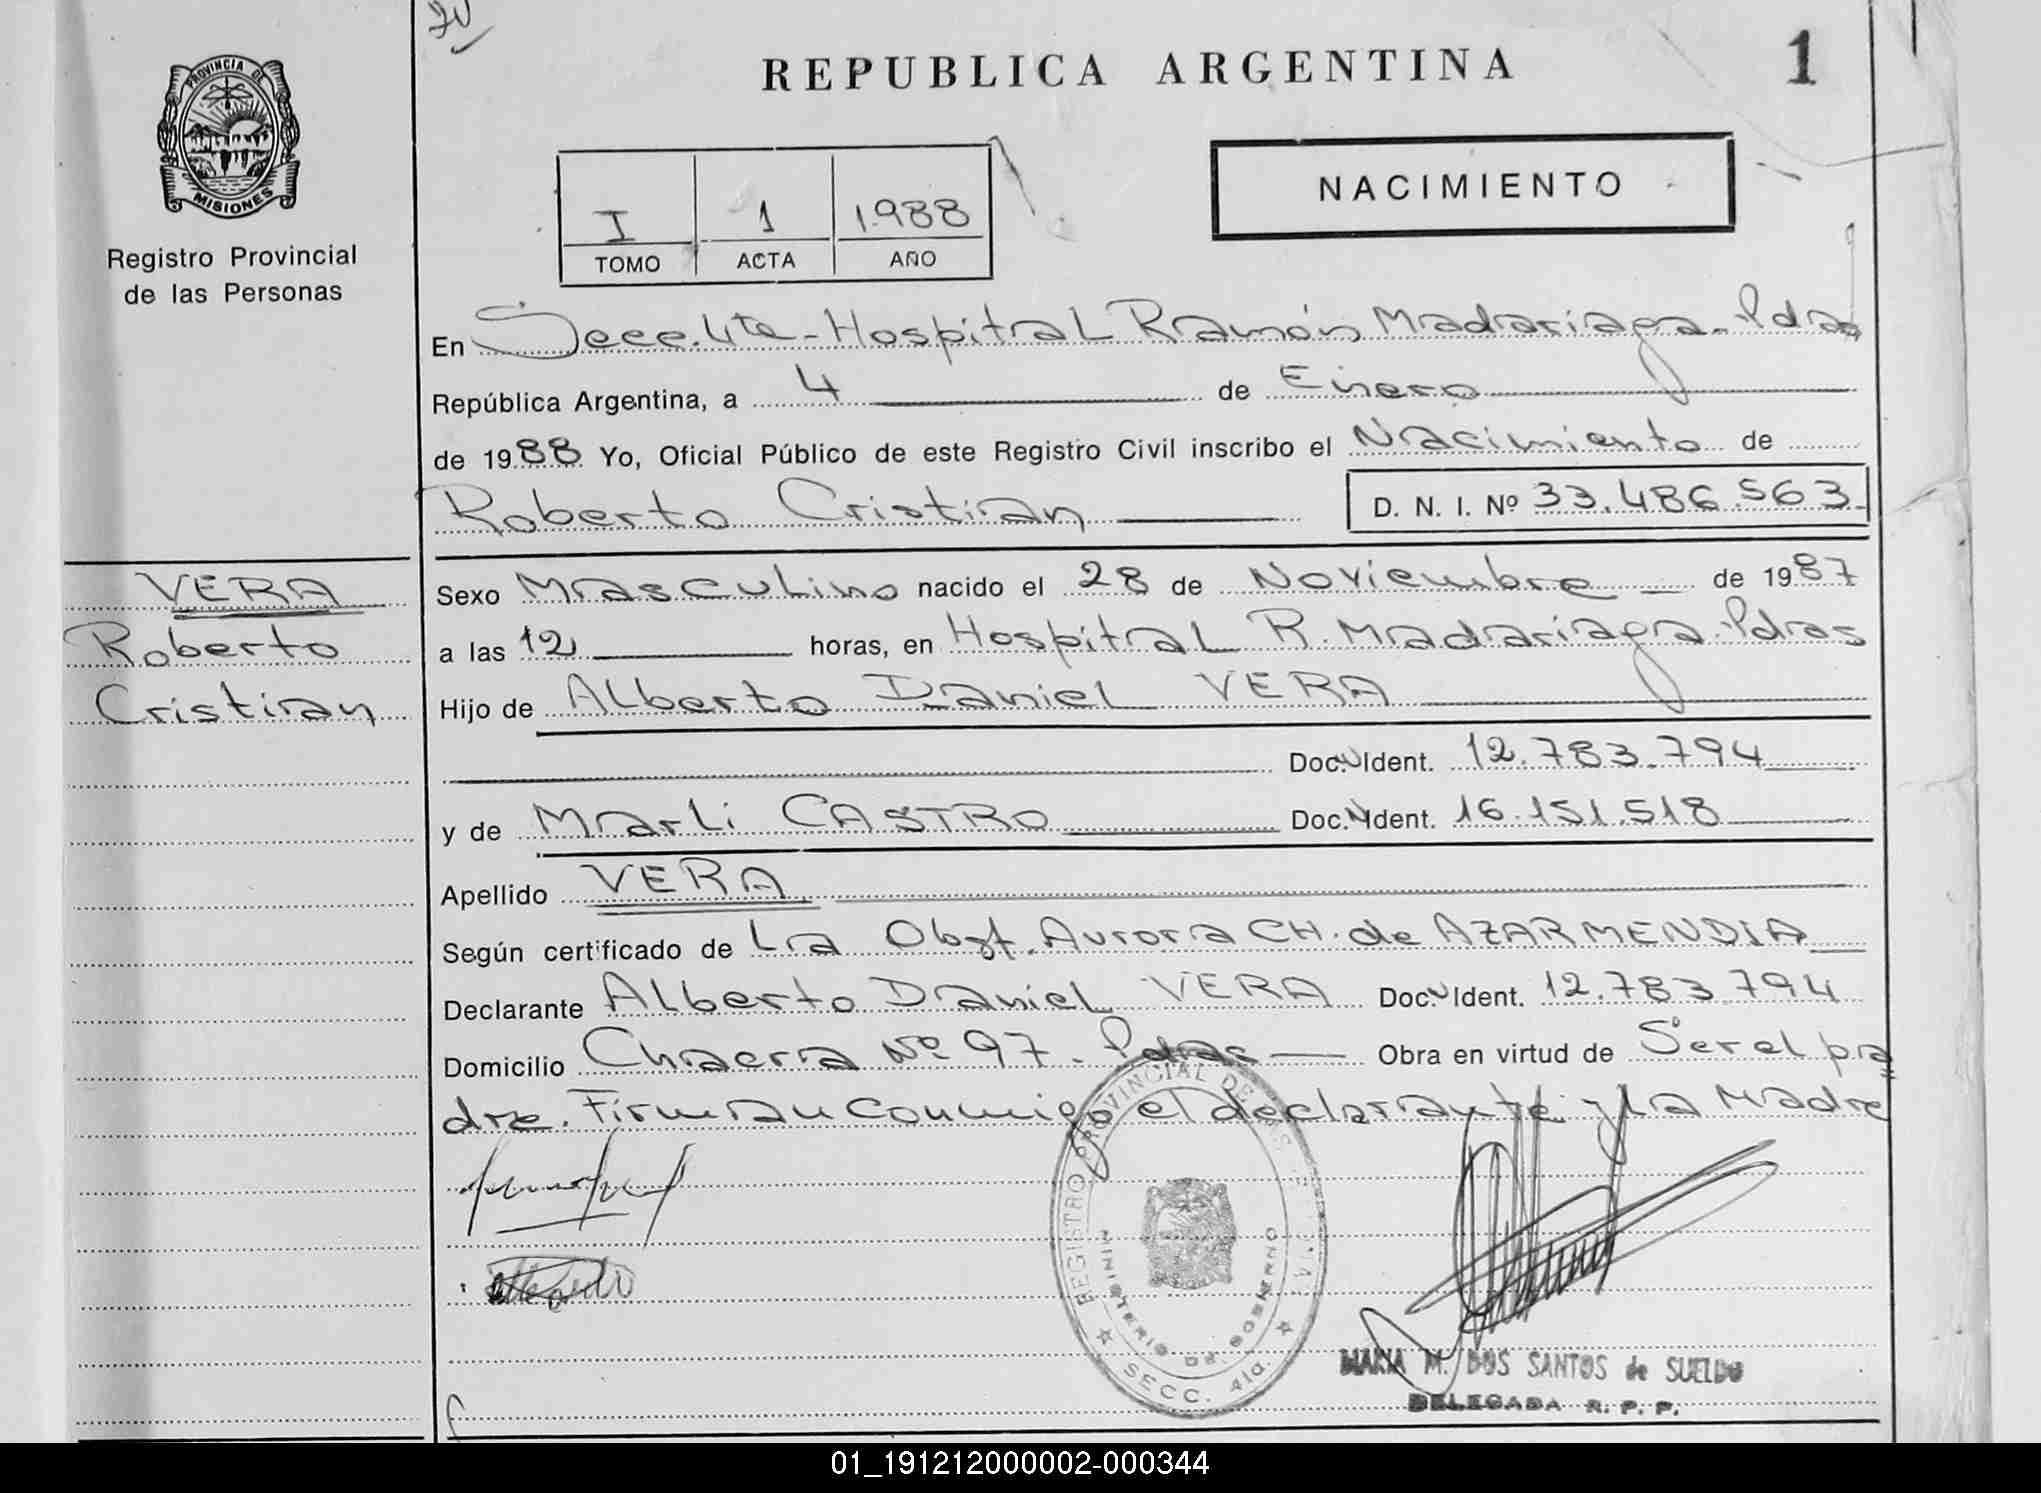 PROVINCIA DE
MISIONES
Registro Provincial
de las Personas
VERA
Roberto
Cristian
REPUBLICA ARGENTINA
1
I 1 1.988
TOMO ACTA AÑO
NACIMIENTO
En Secc. 4ta - Hospital Ramón Madariaga - Pdas
República Argentina, a 4 de Enero
de 1988 Yo, Oficial Público de este Registro Civil inscribo el Nacimiento de
Roberto Cristian D. N. I. Nº 33.486.563
Sexo Masculino nacido el 28 de Noviembre de 1987
a las 12 horas, en Hospital R. Madariaga. Pdas
Hijo de Alberto Daniel VERA
Doc. Ident. 12.783.794
y de Marli CASTRO Doc. Ident. 16.151.518
Apellido VERA
Según certificado de La Obst. Aurora CH. de AZARMENDIA
Declarante Alberto Daniel VERA Doc. Ident. 12.783.794
Domicilio Chacra Nº 97. Pdas Obra en virtud de Ser el pa
dre. Firman conmigo el declarante y la Madre
REGISTRO PROVINCIAL DE LAS PERSONAS
MINISTERIO DE GOBIERNO
SECC. 4ta.
MARIA M. DOS SANTOS de SUELDO
DELEGADA R. P. P.
01_191212000002-000344